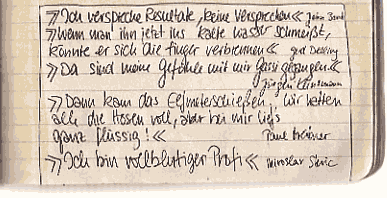 »Ich verspreche Resultate, keine Versprechen«
»Wenn man ihn jetzt ins kalte Wasser schmeißt,
könnte er sich die Finger verbrennen« Gerd Delling
»Da sind meine Gefühle mit mir Gassi gegangen«
Jürgen Klinsmann
»Dann kam das Elfmeterschießen, wir hatten
alle die Hosen voll, aber bei mir lief's
ganz flüssig!« Paul Breitner
»Ich bin vollblutiger Profi« Miroslav